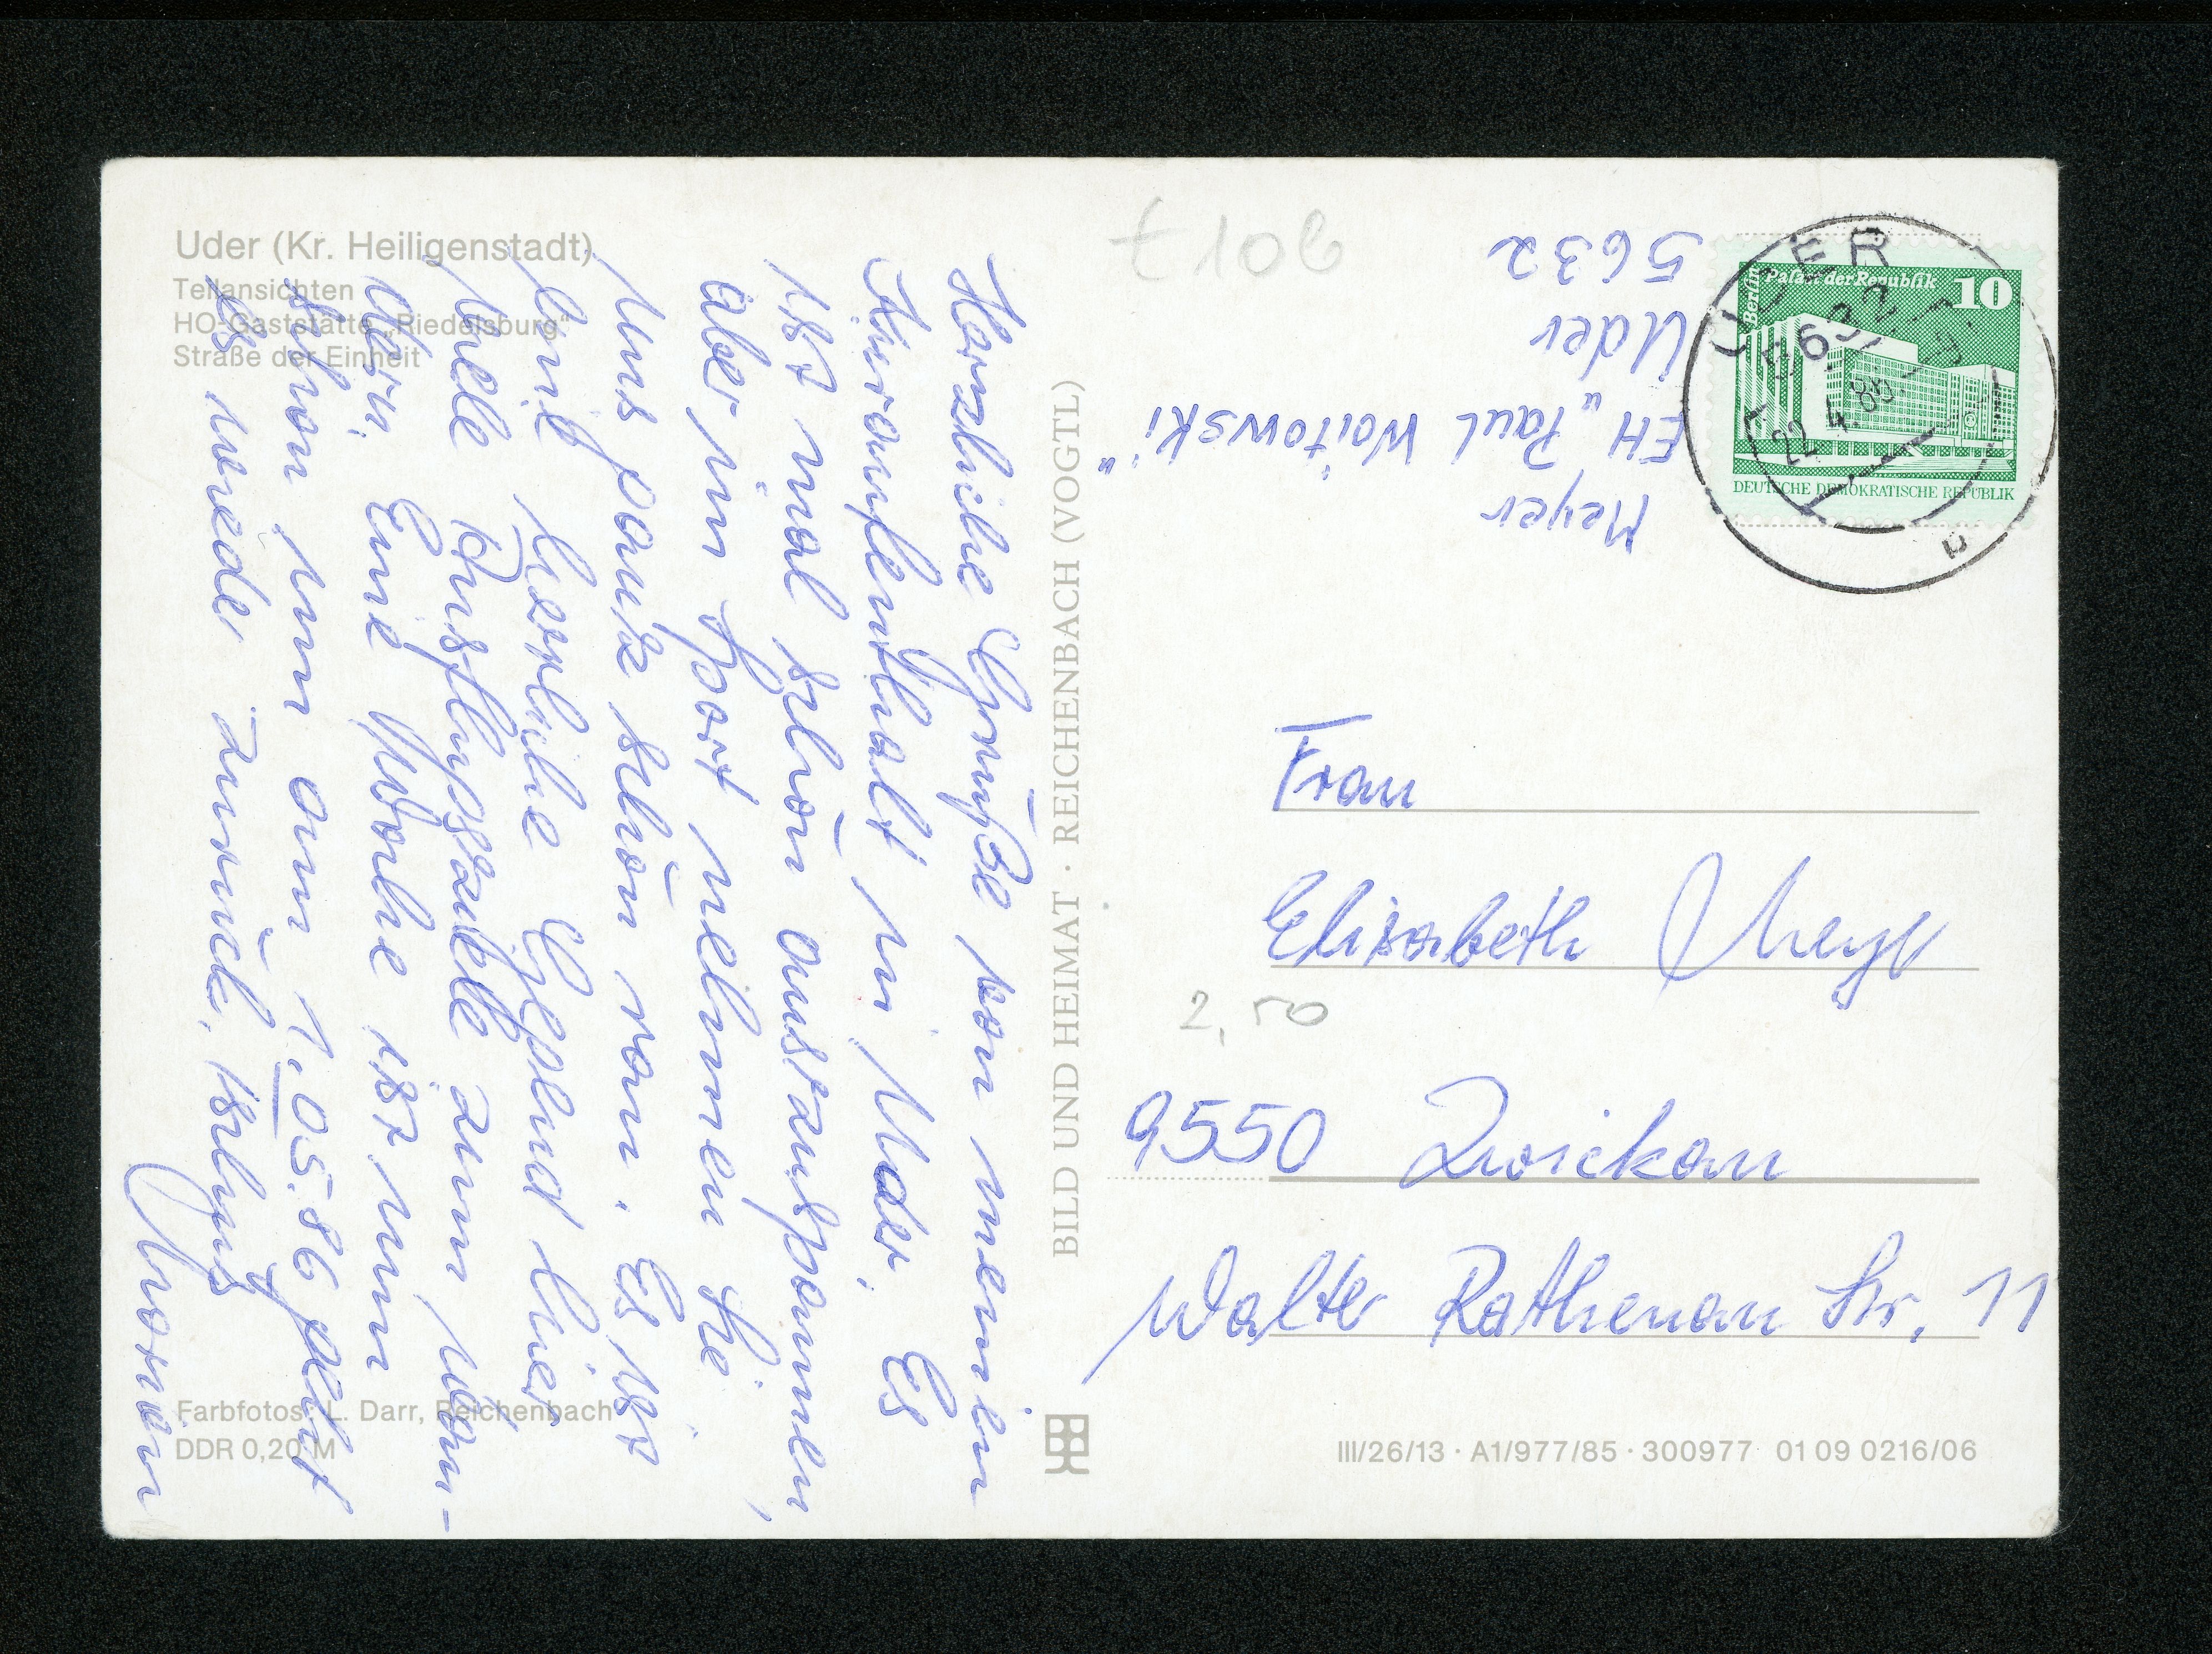 Uder (Kr. Heiligenstadt)
Teilansichten
HO-Gaststätte „Riedelsburg“
Straße der Einheit
Herzliche Grüße von meinem
Kuraufenthalt in Uder. Es
ist mal schön auszuspannen,
aber im Sport nehmen Sie
uns ganz schön ran. Es ist
eine herrliche Gegend hier
viele Ausflugsziele zum Wan-
dern. Eine Woche ist nun
schon um am 1.05.86 geht
es wieder zurück. Tschüs
Farbfotos: L. Darr, Reichenbach
DDR 0,20 M
BILD UND HEIMAT · REICHENBACH (VOGTL)
9017
Meyer
EH „Paul Woitowski“
Uder
5632
Berlin Palast der Republik 10
DEUTSCHE DEMOKRATISCHE REPUBLIK
UDER
5632
22.4.86
Frau
Elisabeth Meyer
2,50
9550 Zwickau
Walter Rathenau Str. 11
III/26/13 · A1/977/85 · 300977 01 09 0216/06